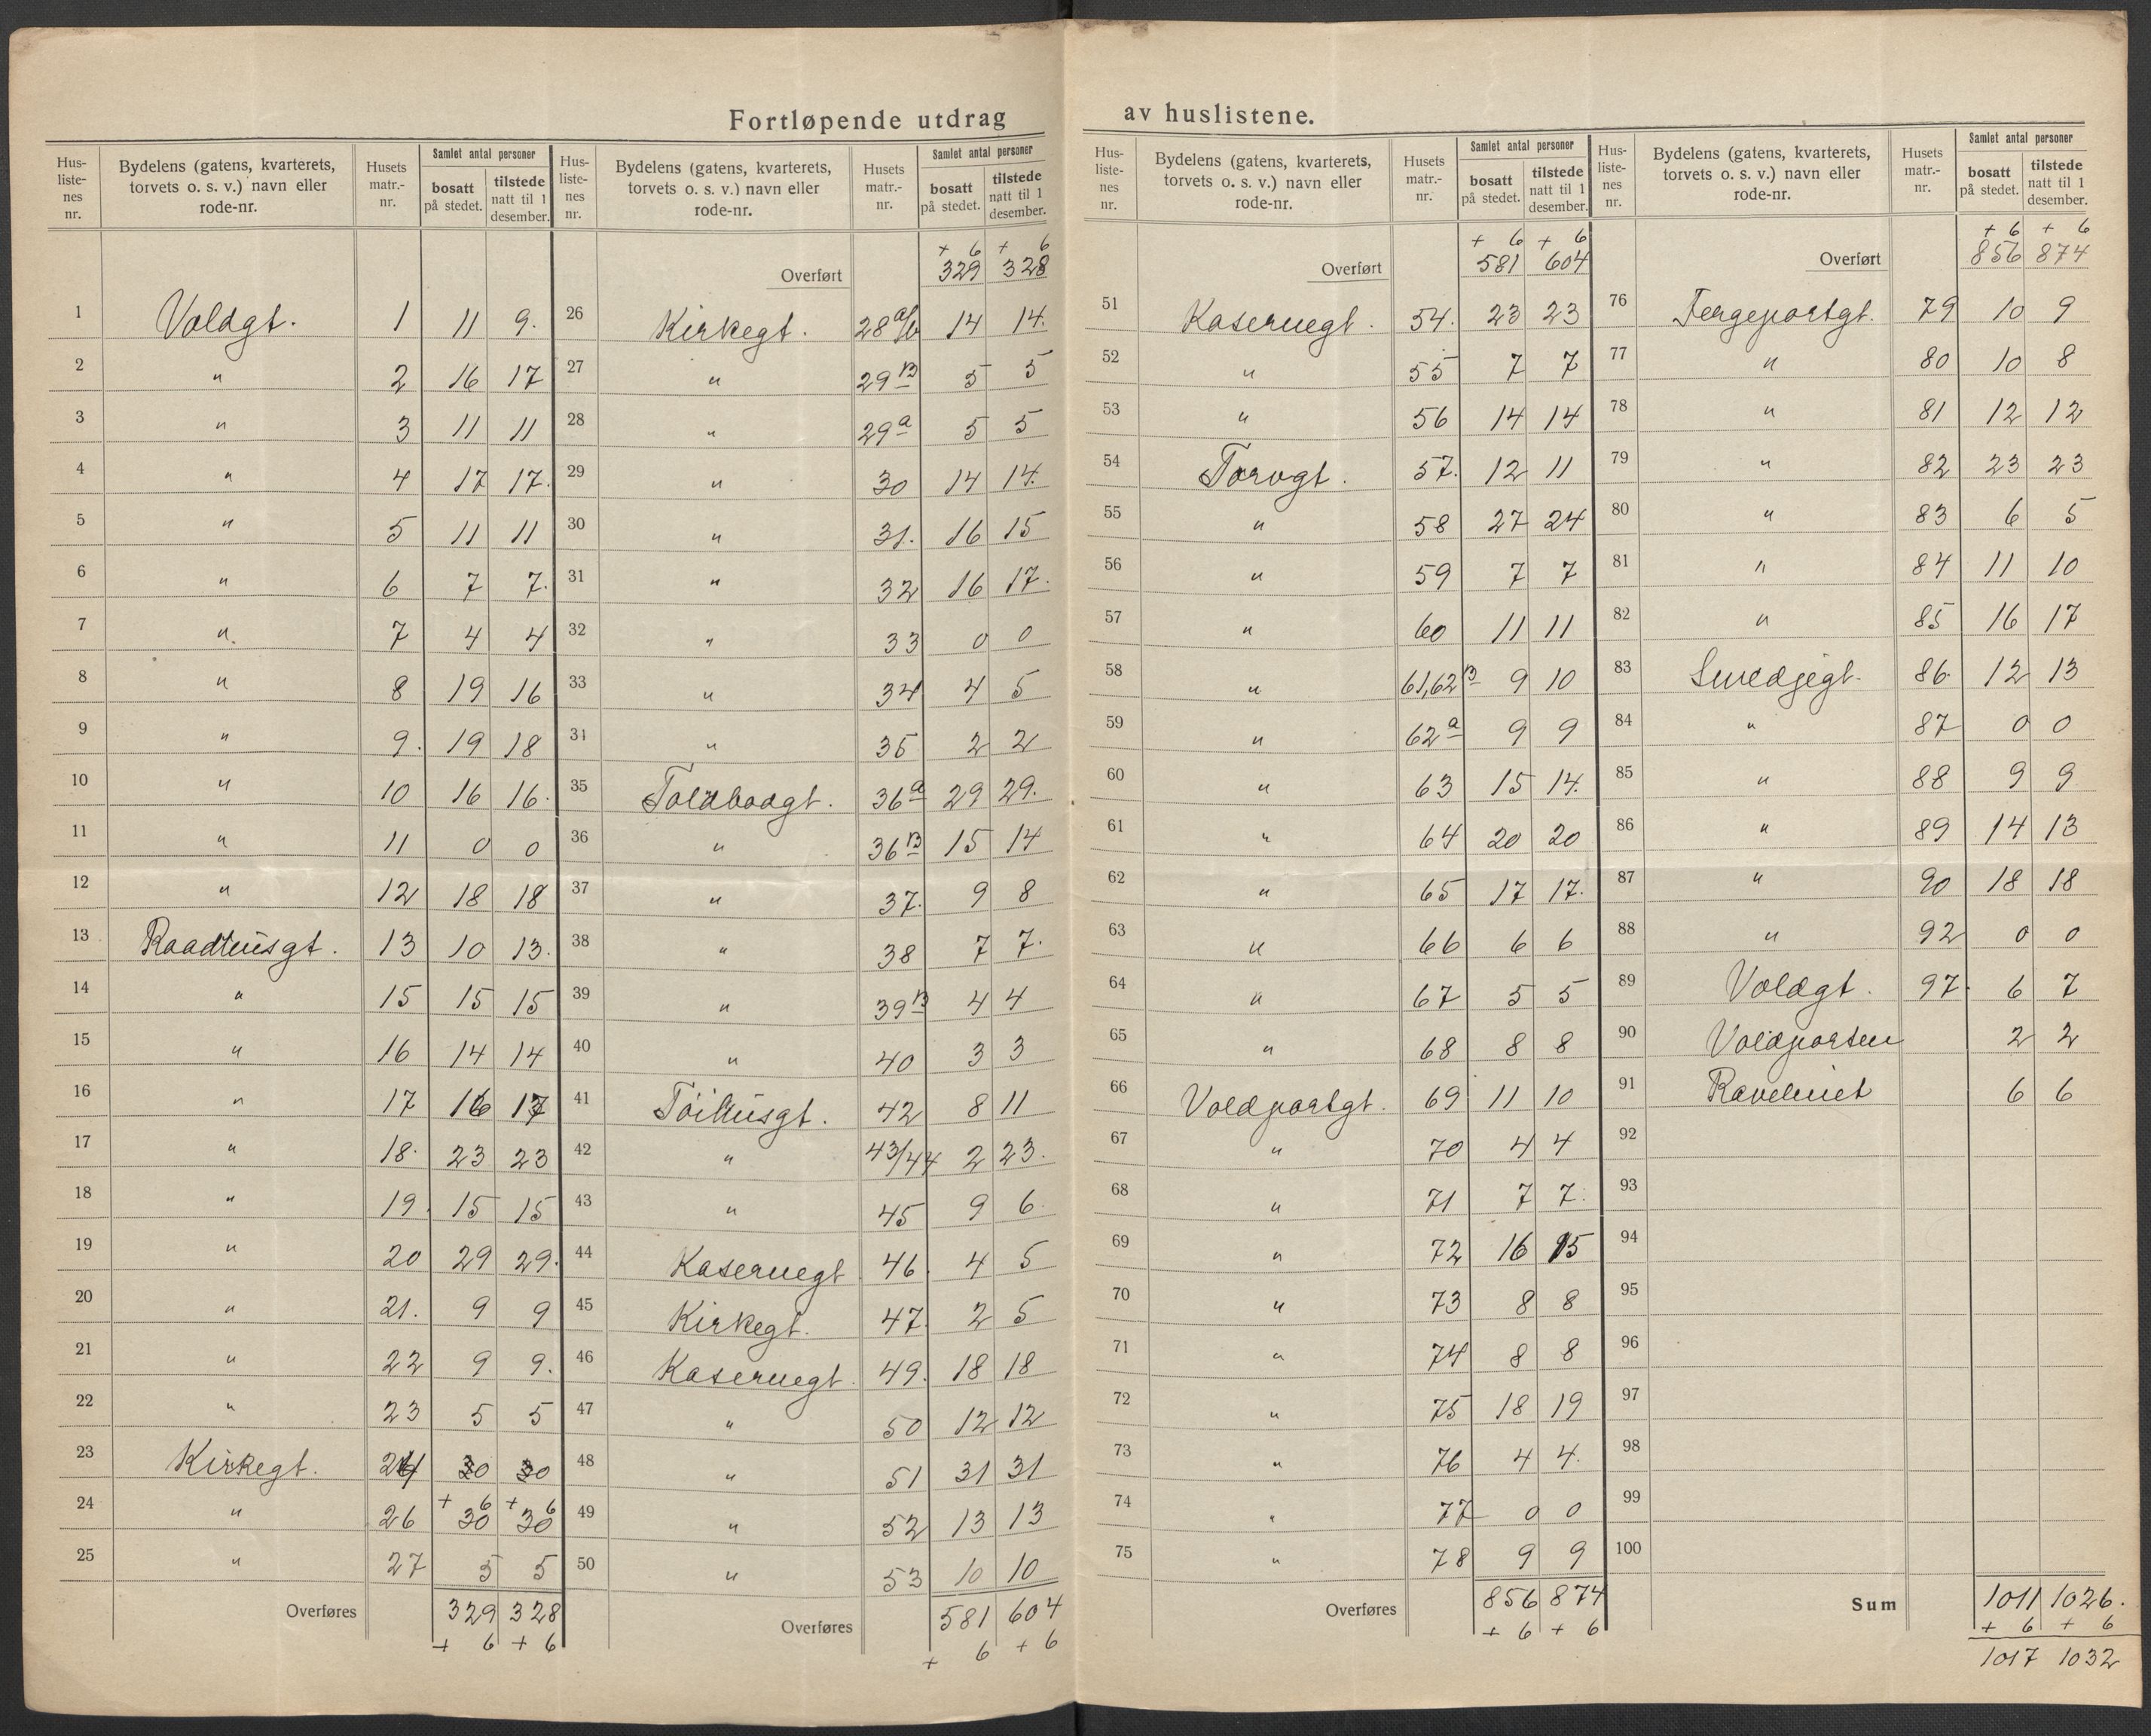 Fortløpende utdrag av huslistene.
Hus-liste-nes nr. Bydelens (gatens, kvarterets, torvets o. s. v.) navn eller rode-nr. Husets matr.-nr. Samlet antal personer bosatt på stedet. tilstede natt til 1 desember.
1 Voldgt. 1 11 9.
2 " 2 16 17
3 " 3 11 11
4 " 4 17 17.
5 " 5 11 11
6 " 6 7 7.
7 " 7 4 4
8 " 8 19 16
9 " 9. 19 18
10 " 10 16 16.
11 " 11 0 0
12 " 12 18 18
13 Raadhusgt. 13 10 13.
14 " 15 15 15
15 " 16 14 14
16 " 17 16 17
17 " 18. 23 23
18 " 19. 15 15
19 " 20 29 29.
20 " 21. 9 9
21 " 22 9 9.
22 " 23 5 5
23 Kirkegt. 24 30 30
+ 6 + 6
24 " 26 30 30
25 " 27 5 5
Overføres 329 328
+ 6 + 6
Hus-liste-nes nr. Bydelens (gatens, kvarterets, torvets o. s. v.) navn eller rode-nr. Husets matr.-nr. Samlet antal personer bosatt på stedet. tilstede natt til 1 desember.
+ 6 + 6
Overført 329 328
26 Kirkegt. 28 a/b 14 14.
27 " 29 B 5 5
28 " 29 a 5 5
29 " 30 14 14.
30 " 31. 16 15
31 " 32 16 17.
32 " 33 0 0
33 " 34 4 5
34 " 35 2 2
35 Toldbodgt. 36 a 29 29.
36 " 36 B 15 14
37 " 37. 9 8
38 " 38 7 7.
39 " 39 B 4 4
40 " 40 3 3
41 Töihusgt. 42 8 11
42 " 43/44 2 23.
43 " 45 9 6.
44 Kasernegt. 46. 4 5
45 Kirkegt. 47. 2 5
46 Kasernegt. 49. 18 18
47 " 50 12 12
48 " 51 31 31
49 " 52 13 13
50 " 53 10 10
Overføres 581 604
+ 6 + 6
Hus-liste-nes nr. Bydelens (gatens, kvarterets, torvets o. s. v.) navn eller rode-nr. Husets matr.-nr. Samlet antal personer bosatt på stedet. tilstede natt til 1 desember.
+ 6 + 6
Overført 581 604
51 Kasernegt. 54. 23 23
52 " 55 7 7
53 " 56 14 14
54 Torvgt. 57. 12 11
55 " 58 27 24
56 " 59 7 7
57 " 60 11 11
58 " 61,62 B 9 10
59 " 62 a 9 9
60 " 63 15 14.
61 " 64 20 20
62 " 65 17 17.
63 " 66 6 6
64 " 67 5 5
65 " 68 8 8
66 Voldportgt. 69 11 10
67 " 70 4 4
68 " 71 7 7.
69 " 72 16 15
70 " 73 8 8
71 " 74 8 8
72 " 75 18 19
73 " 76 4 4.
74 " 77 0 0
75 " 78 9 9
Overføres 856 874
+ 6 + 6
Hus-liste-nes nr. Bydelens (gatens, kvarterets, torvets o. s. v.) navn eller rode-nr. Husets matr.-nr. Samlet antal personer bosatt på stedet. tilstede natt til 1 desember.
+ 6 + 6
Overført 856 874
76 Fergeportgt. 79 10 9
77 " 80 10 8
78 " 81 12 12
79 " 82 23 23
80 " 83 6 5
81 " 84 11 10
82 " 85 16 17
83 Smedjegt. 86. 12 13
84 " 87 0 0
85 " 88 9 9
86 " 89 14 13
87 " 90 18 18
88 " 92 0 0
89 Voldgt. 97. 6 7
90 Voldporten 2 2
91 Ravelinet 6 6
92
93
94
95
96
97
98
99
100
Sum 1011 1026.
+ 6 + 6
1017 1032